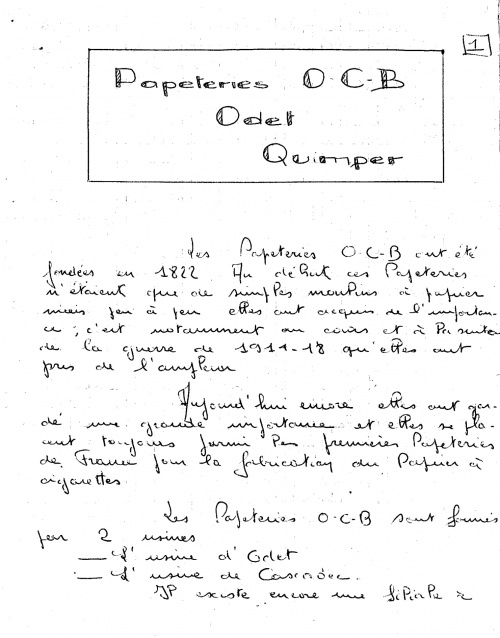 1
Papeteries O.C-B
Odet
Quimper
Les Papeteries O.C-B ont été
fondées en 1822. Au début ces Papeteries
n'étaient que de simples moulins à papier
mais peu à peu elles ont acquis de l'importan-
ce ; c'est notamment au cours et à la suite
de la guerre de 1914-18 qu'elles ont
pris de l'ampleur
Aujourd'hui encore elles ont gar-
dé une grande importance et elles se pla-
cent toujours parmi les premières Papeteries
de France pour la fabrication du Papier à
cigarettes
Les Papeteries O.C-B sont formées
par 2 usines
— L'usine d'Odet
— L'usine de Cascadec.
Il existe encore une filiale à